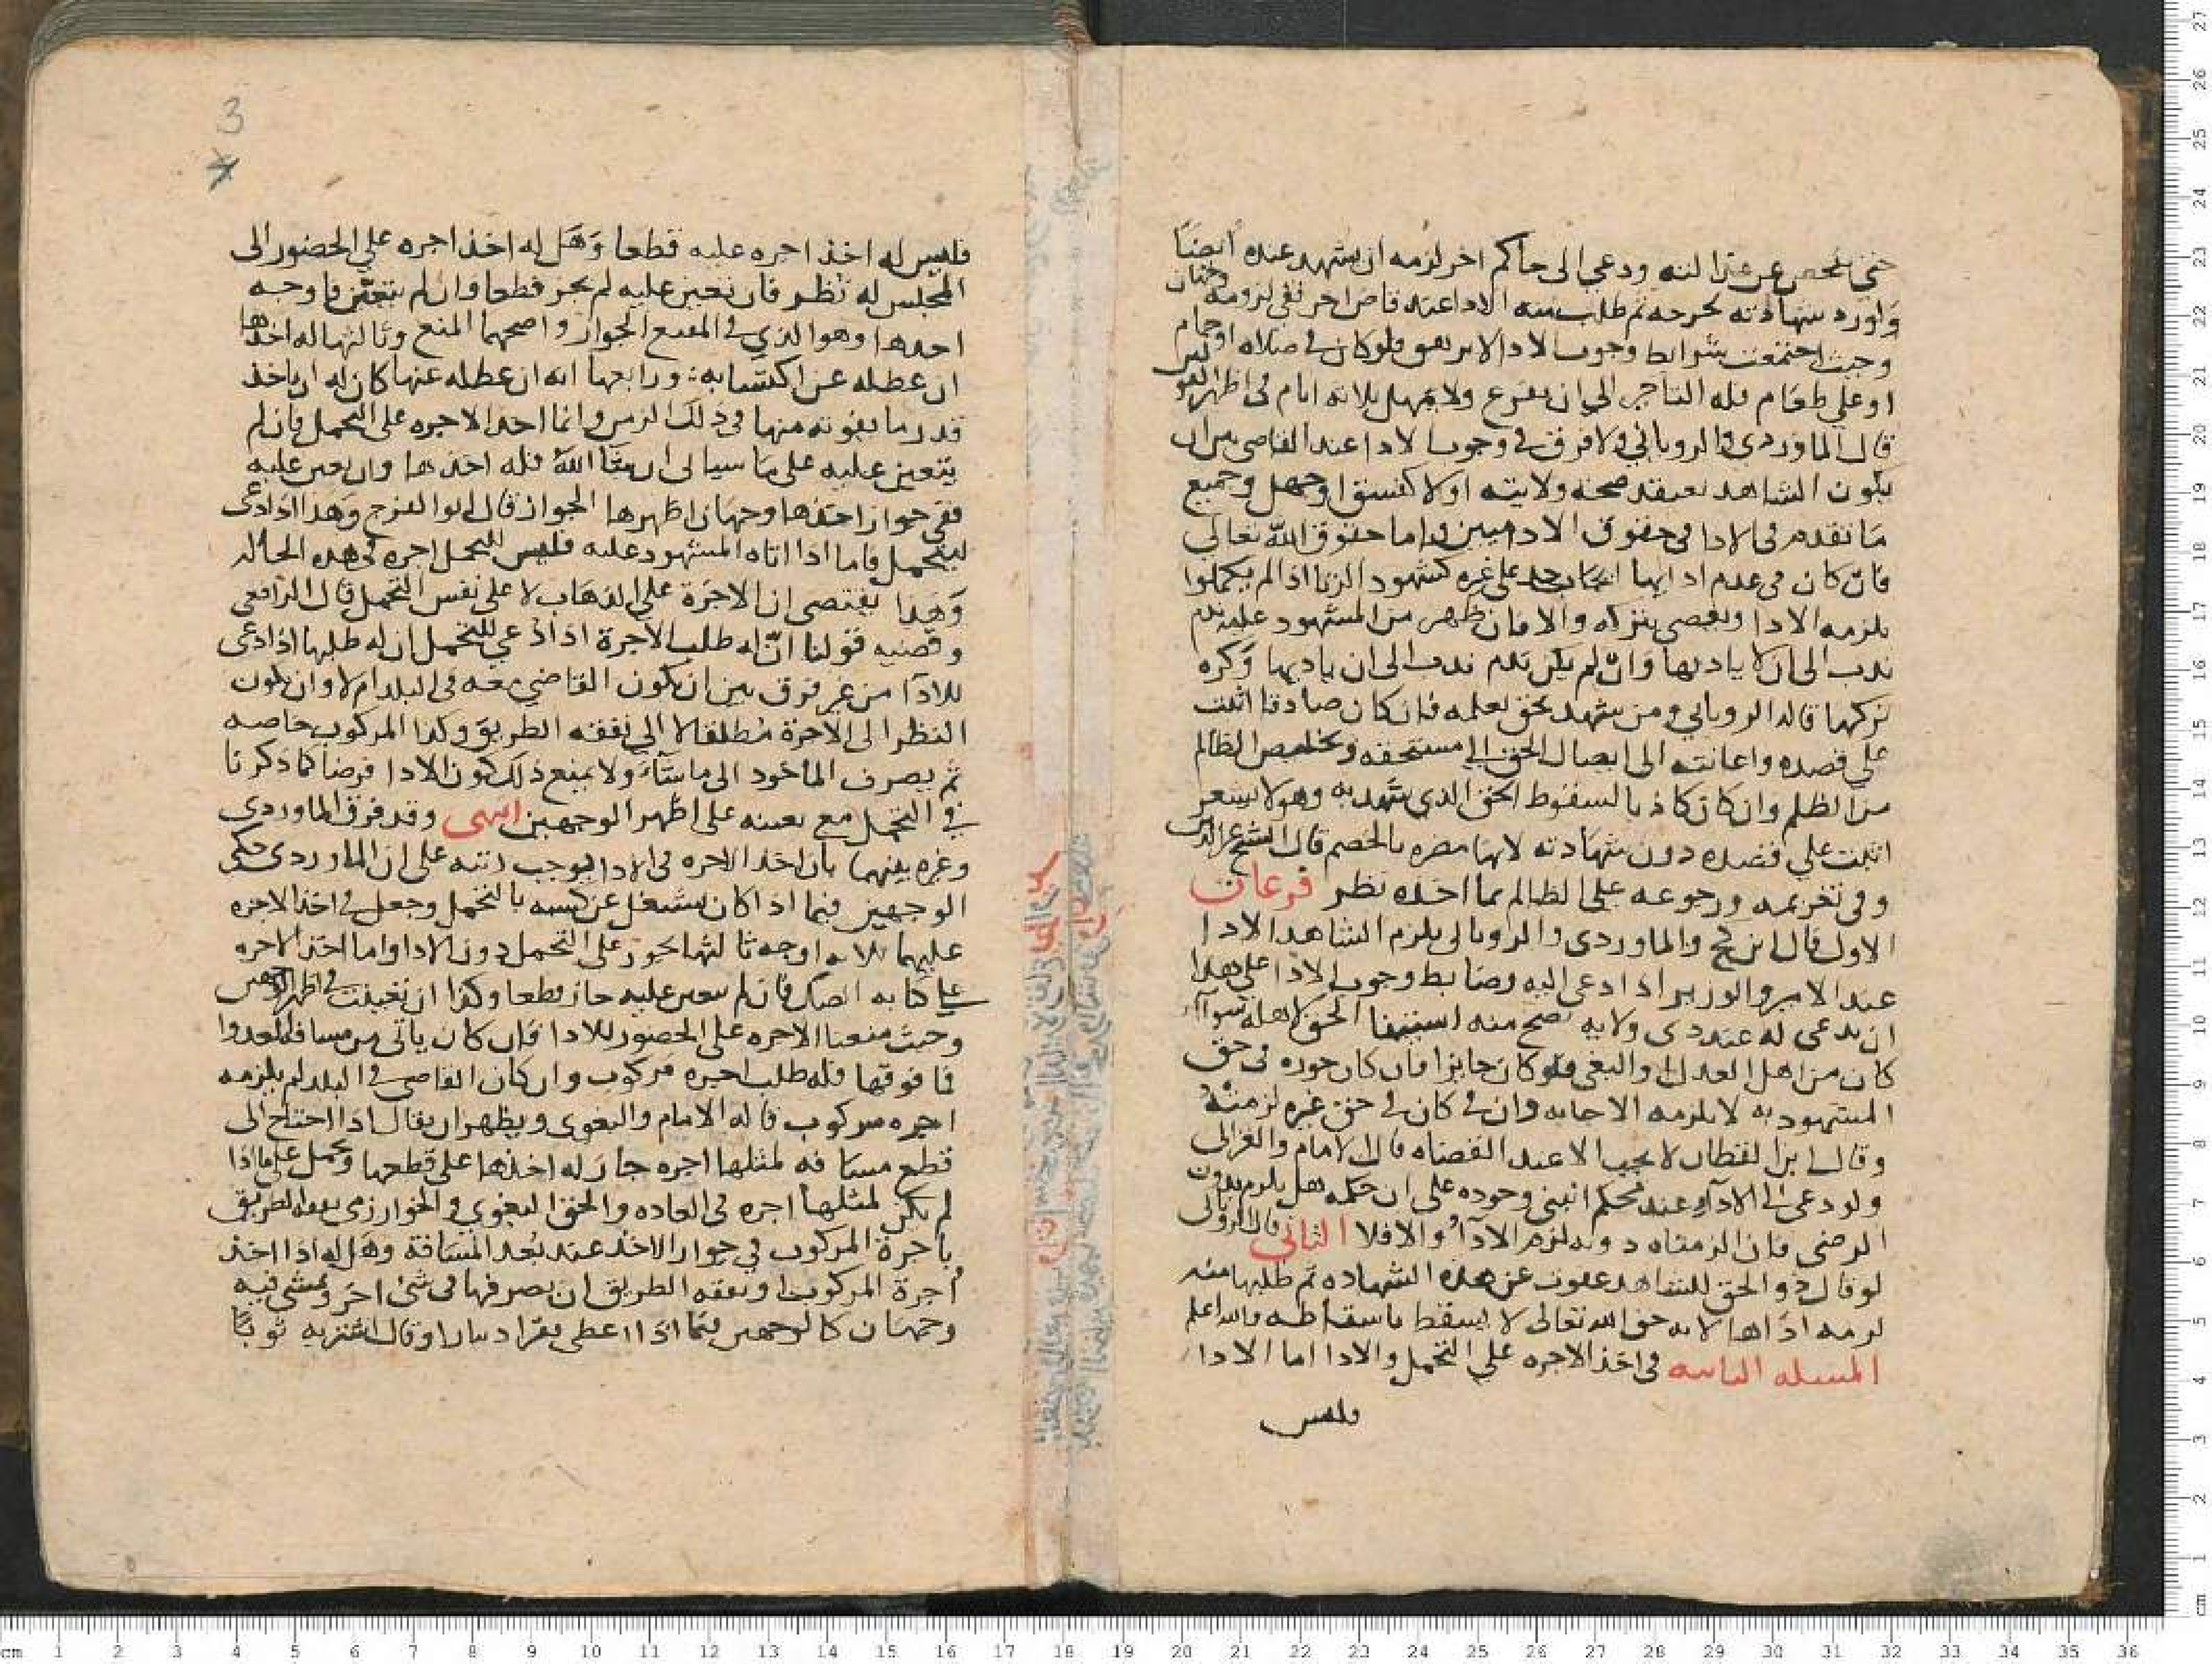 حتى يفحص عن عدالته ودعي الى حاكم اخر لزمه ان يشهد عنده ايضًا
ولو رد شهادته بجرحه ثم طلب منه الادا عند قاض اخر ففي لزومه وجهان
وحيث اجتمعت شرايط وجوب الادا لا يرهق فلو كان في صلاة او حمام
او على طعام فله التاخير الى ان يفرغ ولا يمهل ثلاثة ايام في اظهر القولين
قال الماوردي والروياني ولا فرق في وجوب الادا عند القاضي بين ان
يكون الشاهد يعتقد صحة ولايته او لا كفسق او جهل وجميع
ما تقدم في الادا في حقوق الادميين واما حقوق الله تعالى
فان كان في عدم ادايها ايجاب حد على غيره كشهود الزنا اذا لم يكملوا
يلزمه الادا ويعصي بتركه والا فان ظهر من المشهود عليه ندم
ندب الى ان لا ياديها وان لم يكن ندم ندب الى ان ياديها وكره
تركها قاله الروياني ومن شهد بحق يعلمه فان كان صادقا اثيب
على قصده واعانته الى ايصال الحق الى مستحقه وتخليص الظالم
من الظلم وان كان كاذبا لسقوط الحق الذي شهد به وهو لا يشعر
اثيب على قصده دون شهادته لانها مضره بالخصم قال الشيخ عز الدين
وفي تغريمه ورجوعه على الظالم بما اخذه نظر فرعان
الاول قال ابن كج والماوردي والروياني يلزم الشاهد الادا
عند الامير والوزير اذا دعي اليه وضابط وجوب الادا على هذا
ان يدعى له عند ذي ولاية تصح منه استيفا الحق لاهله سوآء
كان من اهل العدل او البغي فلو كان جايرا فان كان جوره في حق
المشهود به لا يلزمه الاجابه وان كان في حق غيره لزمته
وقال ابن القطان لا يجب الا عند القضاه قال الامام والغزالي
ولو دعي الى الادآء عند محكم انبنى وجوده على ان حكمه هل يلزم بدون
الرضى فان الزمناه دونه لزم الادآء والا فلا الثاني قال الروياني
لو قال ذو الحق للشاهد عفوت عن هذه الشهاده ثم طلبها منه
لزمه اداها لانه حق الله تعالى لا يسقط باسقاطه والله اعلم
المسله الثانيه في اخذ الاجره على التحمل والادا اما الادا
فليس
3
فليس له اخذ اجره عليه قطعا وهل له اخذ اجره على الحضور الى
المجلس له نظر فان تعين عليه لم يجز قطعا وان لم يتعين فاوجه
احدها وهو الذي في المقنع الجواز واصحهما المنع وثالثها له اخذها
ان عطله عن اكتسابه ورابعها انه ان عطله عنها كان له ان ياخذ
قدر ما يفوته منها في ذلك الزمن وانما اخذ الاجره على التحمل فان لم
يتعين عليه على ما سياتى ان شآ الله فله اخذها وان تعين عليه
ففي جواز اخذها وجهان اظهرها الجواز قال ابو الفرج وهذا اذا دعي
ليتحمل فاما اذا اتاه المشهود عليه فليس للتحمل اجره في هذه الحاله
وهذا يقتضي ان الاجرة على الذهاب لا على نفس التحمل قال الرافعي
وقضيه قولنا ان له طلب الاجرة اذا دعي للتحمل ان له طلبها اذا دعي
للادآ من غير فرق بين ان يكون القاضي معه في البلد ام لا وان يكون
النظر الى الاجرة مطلقا لا الى نفقه الطريق وكذا المركوب خاصه
ثم يصرف الماخوذ الى ما شآء ولا يمنع ذلك كون الادا فرضا كما ذكرنا
في التحمل مع تعينه على اظهر الوجهين انتهى وقد فرق الماوردي
وغيره بينهما بان اخذ الاجره في الادا يوجب تهمة على ان الماوردي حكى
الوجهين فيما اذا كان يشتغل عن كسبه بالتحمل وجعل في اخذ الاجره
عليهما ثلاثه اوجه ثالثها يجوز على التحمل دون الادا واما اخذ الاجره
على كتابه الصك فان لم يتعين عليه جاز قطعا وكذا ان تعينت في اظهر الوجهين
وحيث منعنا الاجره على الحضور للادا فان كان ياتي من مسافه العدوا
فما فوقها فله طلب اجره مركوب وان كان القاضي في البلد لم يلزمه
اجره مركوب قاله الامام والبغوي ويظهر ان يقال اذا احتاج الى
قطع مسافه لمثلها اجره جاز له اخذها على قطعها ويحمل على ما اذا
لم يكن لمثلها اجره في العاده والحق البغوي والخوارزمي نفقه الطريق
باجرة المركوب في جواز الاخذ عند بعد المسافة وهل له اذا اخذ
اجرة المركوب او نفقه الطريق ان يصرفها في شئ اخر ويمشي فيه
وجهان كالوجهين فيما اذا اعطى فقيرا دينارا وقال اشتر به ثوبًا